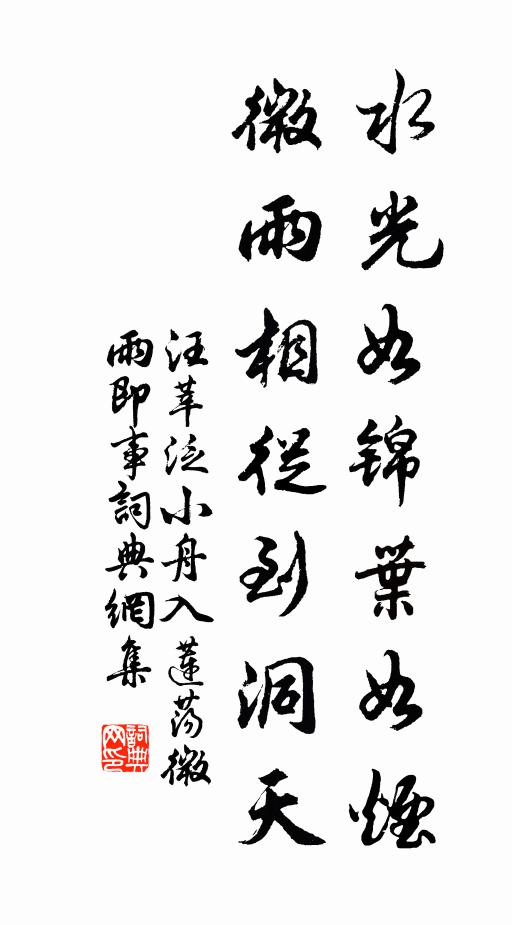 水光如锦葉如煙
微雨相從到洞天
汪莘泛小舟入蓮蕩微
雨即事詞典網集
詞典
网印